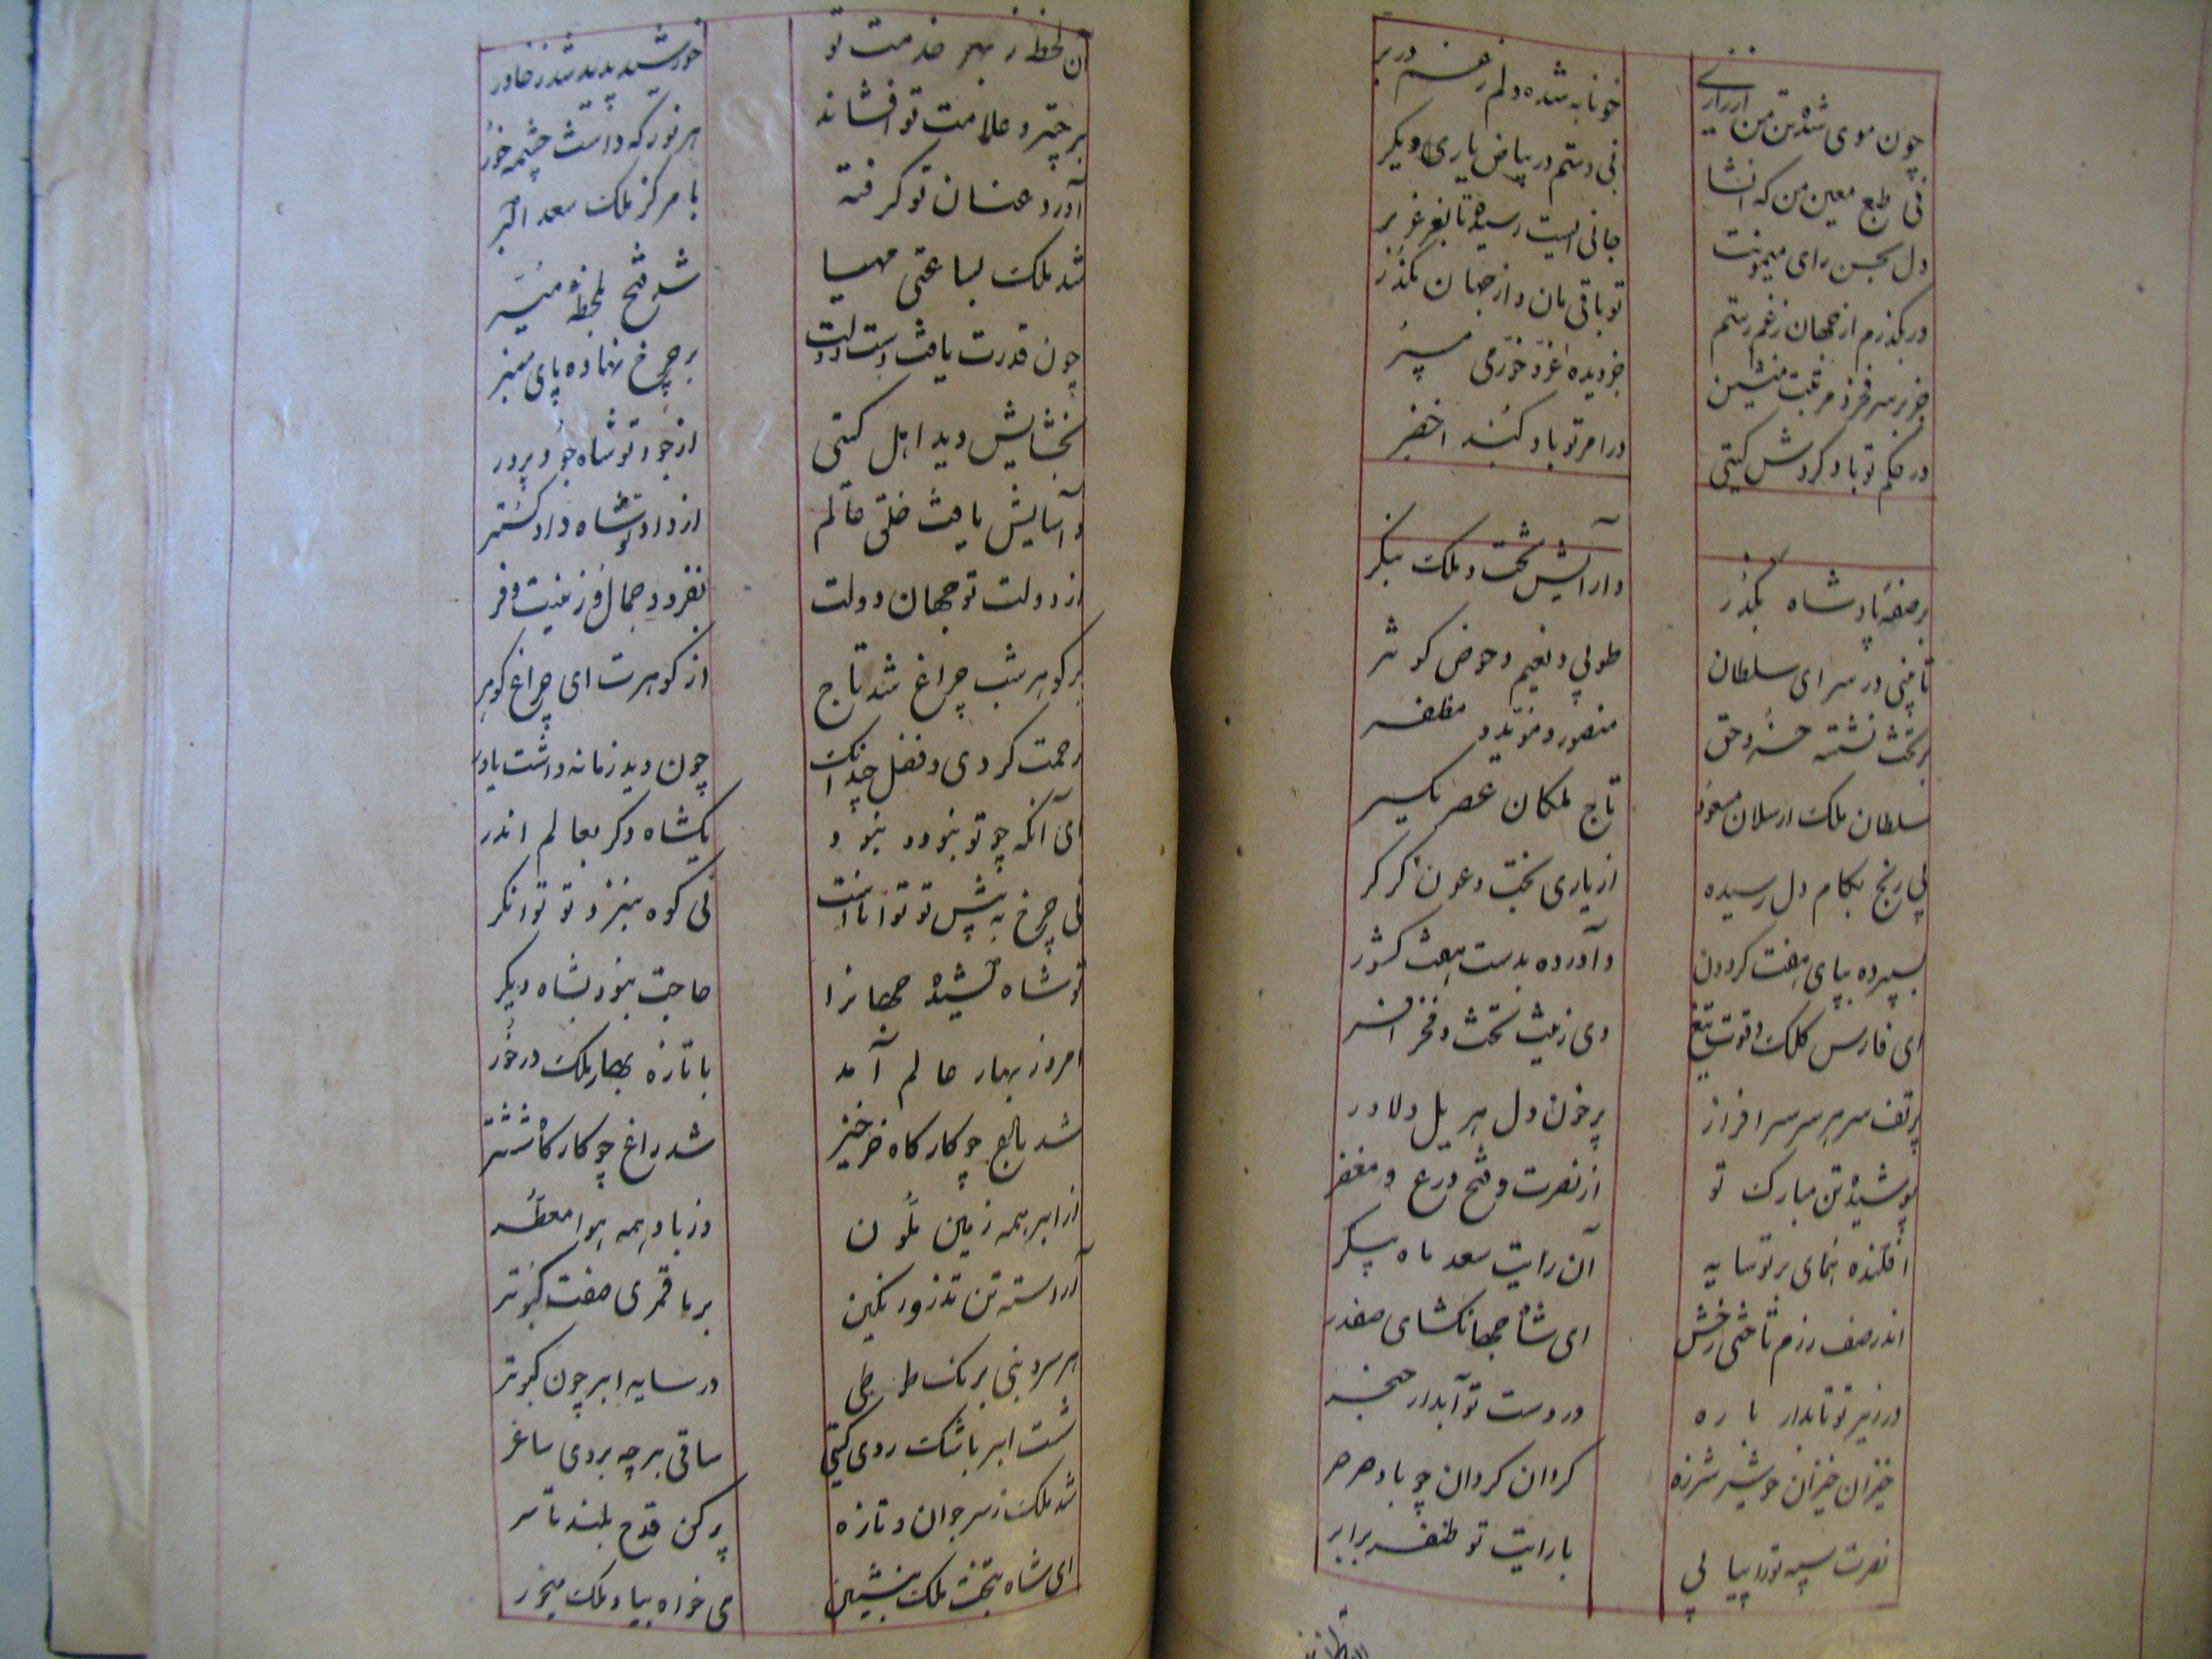 چون موی شد تن من از زاری
خونابه شده دلم ز غم در بر
نی طبع معین من که انشا
نی دستم در بیاض یاریگر
دل بحسن رای میمونت
جانی است رسیده تا بغرغر بر
در بگذرم از جهان ز غم رستم
تو باقی مان و از جهان مگذر
جز بر سر فخر و مرتبت منشین
جز دیده عز و خرمی مسپر
در حکم تو باد گردش گیتی
در امر تو باد گنبد اخضر
بر صفه پادشاه بگذر
و آرایش تخت و ملک بنگر
تا بینی در سرای سلطان
طوبی و نعیم و حوض کوثر
بر تخت نشسته خسرو حق
منصور و موید و مظفر
سلطان ملک ارسلان مسعود
تاج ملکان عصر یکسر
بی رنج بکام دل رسیده
از یاری بخت و عون گرگر
بسپرده بپای هفت گردون
و آورده بدست هفت کشور
ای فارس کلک و قوت تیغ
وی زینت تخت و فخر افسر
پر تف سر هر سر سرافراز
پر خون دل هر یل دلاور
پوشیده تن مبارک تو
از نصرت و فتح درع و مغفر
افکنده همای بر تو سایه
آن رایت سعد ماه پیکر
اندر صف رزم تاختی رخش
ای شاه جهانگشای صفدر
در زیر تو تابدار باره
در دست تو آبدار خنجر
خیزان خیزان چو شیر شرزه
گردان گردان چو باد صرصر
نصرت سپه تو را پیاپی
با رایت تو ظفر برابر
آن لحظه ز بهر خدمت تو
خورشید پدید شد ز خاور
بر چتر و علامت تو افشاند
هر نور که داشت چشمه خور
آورد عنان تو گرفته
با مرکز ملک سعد اکبر
شد ملک بساعتی مهیا
شد فتح بلحظه میسر
چون قدرت یافت دست دولت
بر چرخ نهاده پای منبر
بخشایش دید اهل گیتی
از جود تو شاه جود پرور
و آسایش یافت خلق عالم
از داد تو شاه دادگستر
از دولت تو جهان دولت
بفزود جمال و زینت و فر
بر گوهر شب چراغ شد تاج
از گوهرت ای چراغ گوهر
رحمت کردی و فضل چندانک
چون دید زمانه داشت باور
ای آنکه چو تو نبود و نبود
یکشاه دگر بعالم اندر
نی چرخ به پیش تو تواناست
نی کوه بنزد تو توانگر
تو شاه بشیده جهانرا
حاجت نبود بشاه دیگر
امروز بهار عالم آمد
با تازه بهار ملک در خور
شد باغ چو کارگاه خرخیز
شد راغ چو کارگاه ششتر
از ابر همه زمین ملون
وز باد همه هوا معطر
آراسته تن تذرو رنگین
بر با قمری صفت کبوتر
هر سرو بنی برنگ طوطی
در سایه ابر چون کبوتر
شست ابر باشک روی گیتی
ساقی بر چه بروی ساغر
شد ملک ز سر جوان و تازه
پر کن قدح بلند تا سر
ای شاه بتخت ملک بنشین
می خواه بیاد ملک میخور